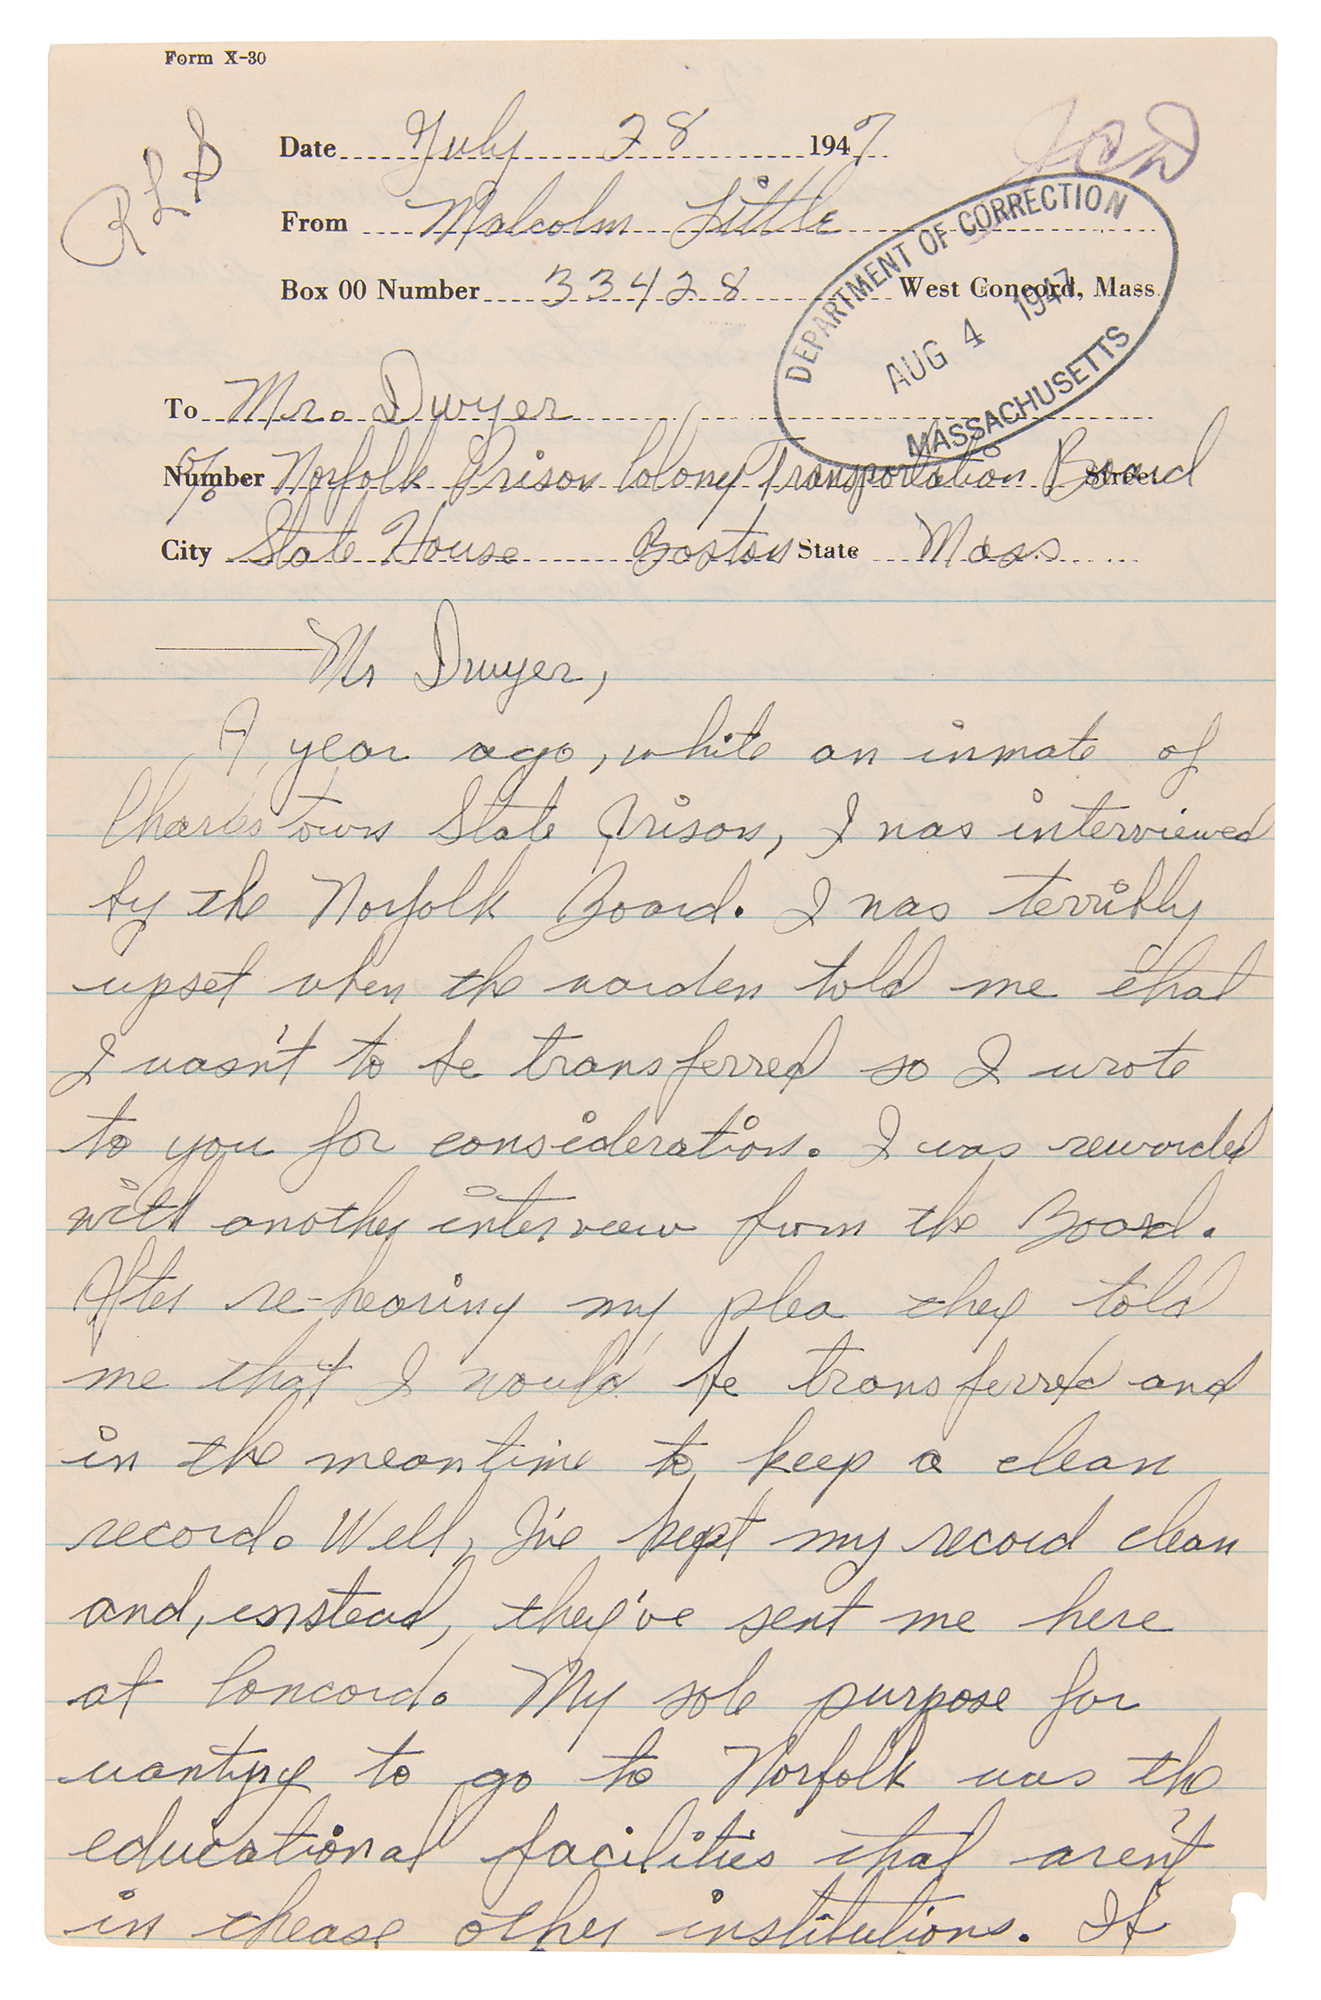 Form X-30
RLS
JCD
Date July 28 1947
From Malcolm Little
Box 00 Number 33428 West Concord, Mass.
DEPARTMENT OF CORRECTION
AUG 4 1947
MASSACHUSETTS
To Mr. Dwyer
Number c/o Norfolk Prison Colony Transportation Board Street
City State House Boston State Mass
Mr Dwyer,
A year ago, while an inmate of
Charlestown State Prison, I was interviewed
by the Norfolk Board. I was terribly
upset when the warden told me that
I wasn't to be transferred so I wrote
to you for consideration. I was rewarded
with another interview from the Board.
After re-hearing my plea they told
me that I would be transferred and
in the meantime to keep a clean
record. Well, I've kept my record clean
and, instead, they've sent me here
at Concord. My sole purpose for
wanting to go to Norfolk was the
educational facilities that aren't
in thease other institutions. If